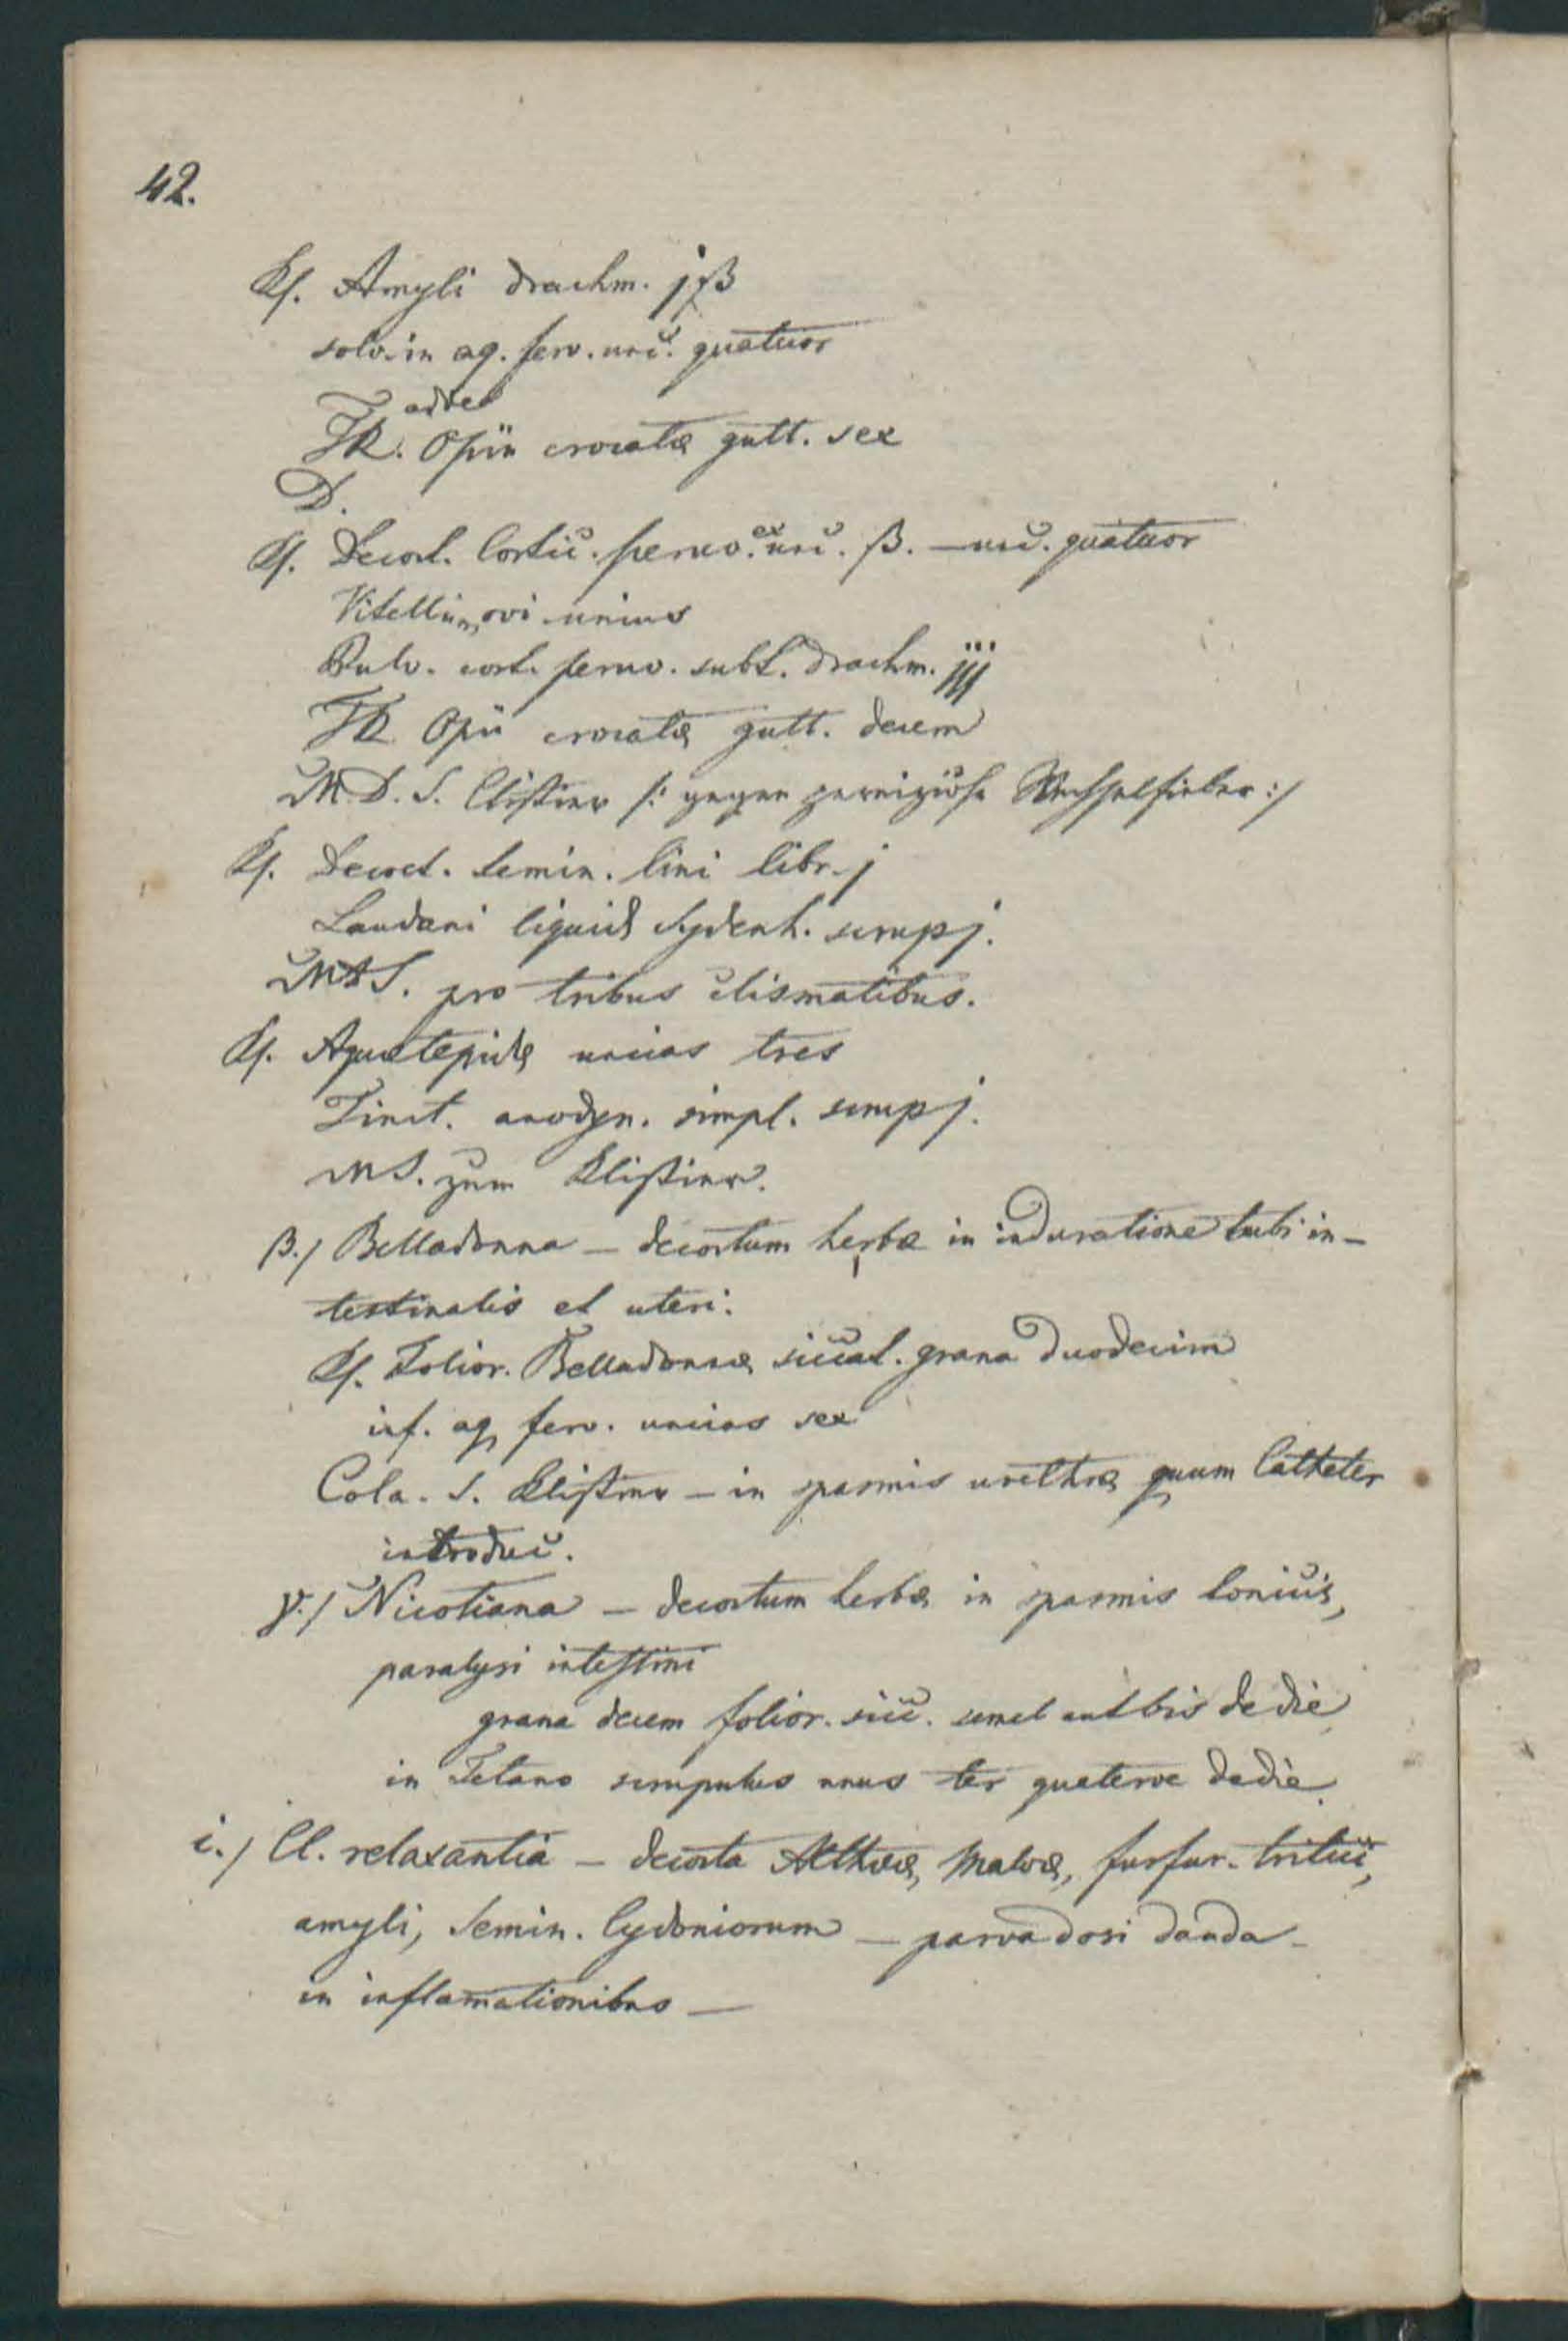 42.
Rp. Amyli drachm. jß
solv. in aq. ferv. unc. quatuor
adde
TR. Opii crocatæ gutt. sex
D.
Rp. Decoct. Cortic. peruv. ex unc. ß. — unc. quatuor
Vitellum ovi unius
Pulv. cort. peruv. subt. drachm. jjj
TR Opii crocatæ gutt. decem
M. D. S. Clistier /: gegen perniziöse Wechselfieber :/
Rp. Decoct. Semin. lini libr. j
Laudani liquid Sydenh. scrup j.
MDS. pro tribus clismatibus.
Rp. Aquæ tepidæ uncias tres
Tinct. anodyn. simpl. scrup j.
MS. zum Klistier.
β./ Belladonna — decoctum herbæ in induratione tubi in-
testinalis et uteri.
Rp. Folior. Belladonnæ siccat. grana duodecim
inf. aq. ferv. uncias sex
Cola. S. Klistier — in spasmis urethræ quum Catheter
introduc.
γ./ Nicotiana — decoctum herbæ in spasmis tonicis,
paralysi intestini
grana decem folior. sicc. semel aut bis de die
in Tetano scrupulus unus ter quaterve de die.
i./ Cl. relaxantia — decocta Altheæ, Malvæ, furfur. tritici,
amyli, Semin. Cydoniorum — parva dosi danda
in inflamationibus —